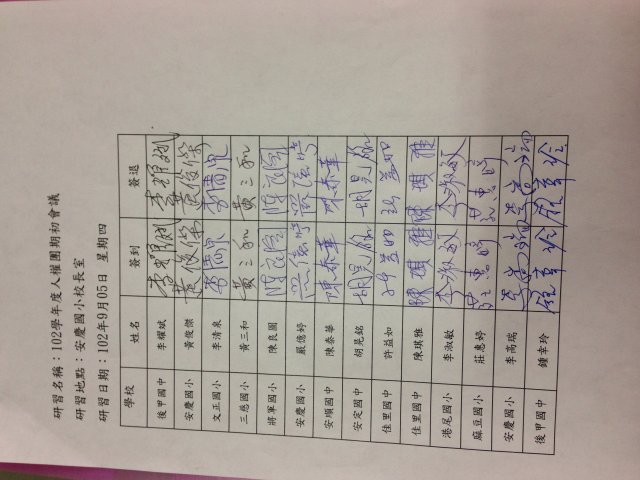 研習名稱：102學年度人權團期初會議
研習地點：安慶國小校長室
研習日期：102年9月05日 星期四
學校 姓名 簽到 簽退
後甲國中 李耀斌 李耀斌 李耀斌
安慶國小 黃俊傑 黃俊傑 黃俊傑
文正國小 李清泉 李清泉 李清泉
三慈國小 黃三和 黃三和 黃三和
將軍國小 陳良圖
安慶國小 嚴億婷
安順國中 陳泰華 陳泰華 陳泰華
安定國中 胡晃銘 胡晃銘 胡晃銘
佳里國中 許益如 許益如 許益如
佳里國中 陳琪雅 陳琪雅 陳琪雅
港尾國小 李淑敏 李淑敏 李淑敏
麻豆國小 莊惠婷 莊惠婷 莊惠婷
安慶國小 李高瑞
後甲國中 鍾幸玲 鍾幸玲 鍾幸玲